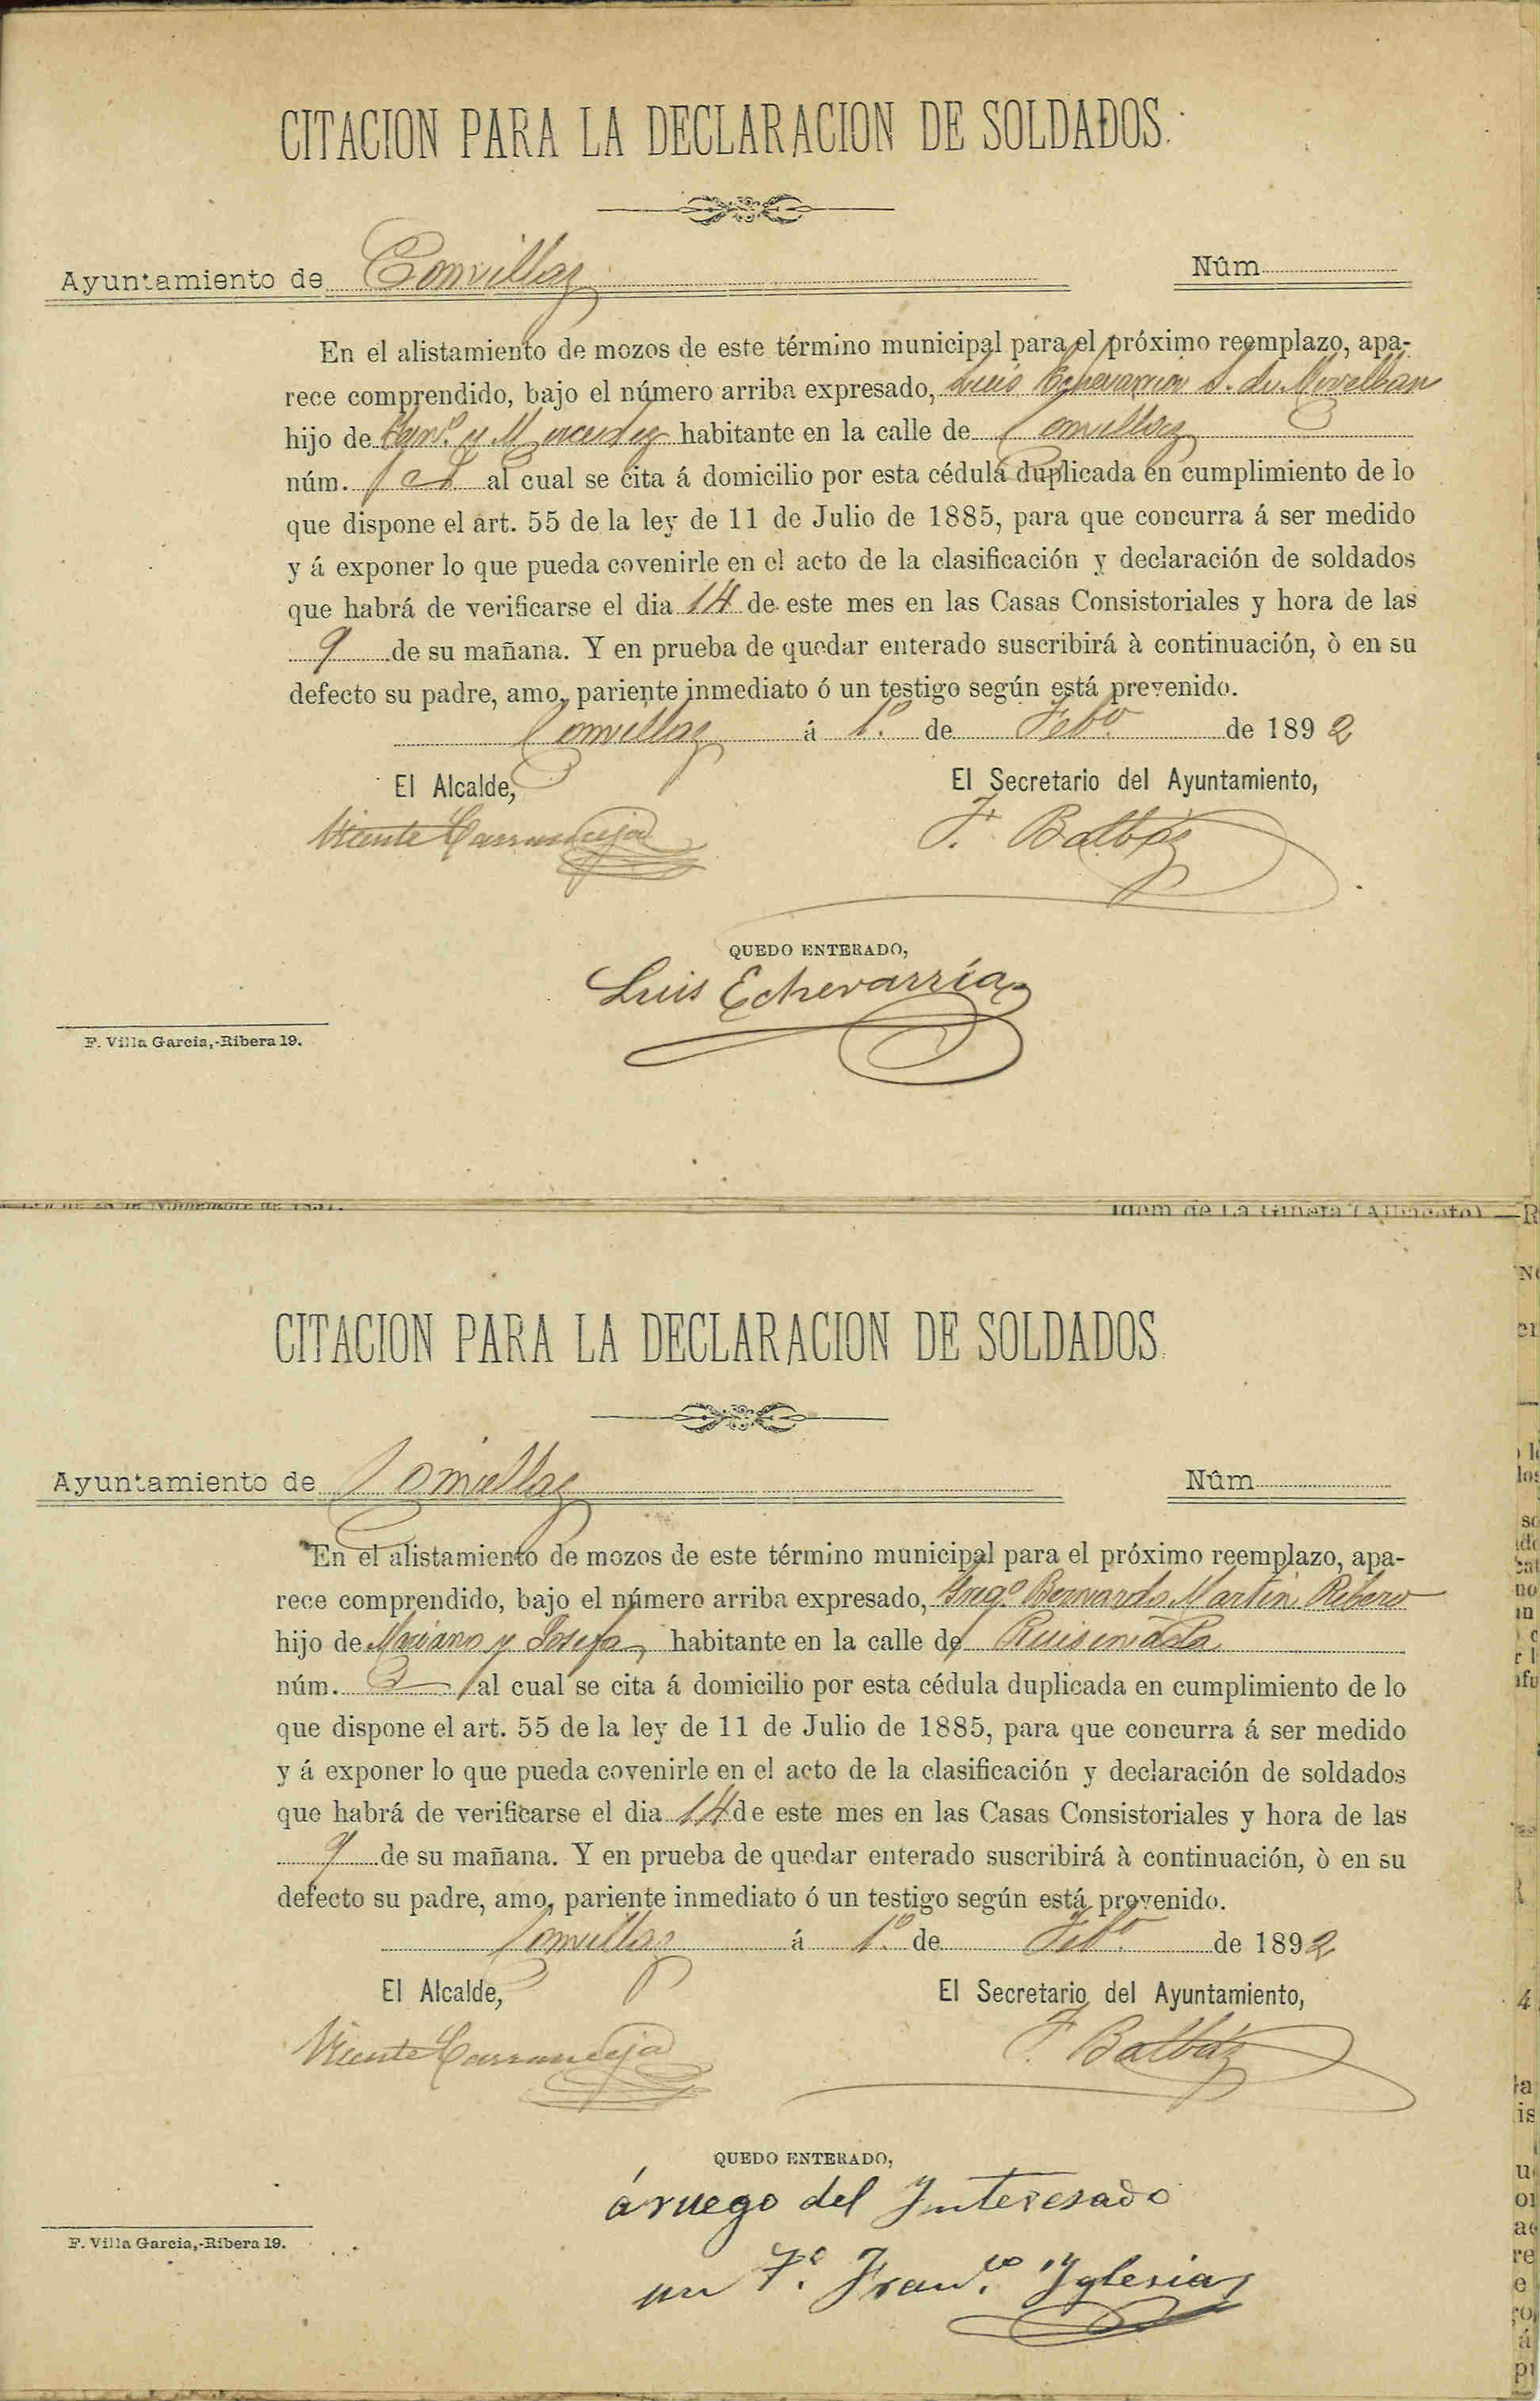 CITACION PARA LA DECLARACION DE SOLDADOS.
Ayuntamiento de Comillas Núm.
En el alistamiento de mozos de este término municipal para el próximo reemplazo, apa-
rece comprendido, bajo el número arriba expresado, Luis Echevarria S. de Movellan
hijo de y Mercedes habitante en la calle de Comillas
núm. al cual se cita á domicilio por esta cédula duplicada en cumplimiento de lo
que dispone el art. 55 de la ley de 11 de Julio de 1885, para que concurra á ser medido
y á exponer lo que pueda covenirle en el acto de la clasificación y declaración de soldados
que habrá de verificarse el dia 14 de este mes en las Casas Consistoriales y hora de las
9 de su mañana. Y en prueba de quedar enterado suscribirá à continuación, ò en su
defecto su padre, amo, pariente inmediato ó un testigo según está prevenido.
Comillas á 1.º de Feb.º de 1892
El Alcalde, El Secretario del Ayuntamiento,
Vicente Carranceja F. Balbás
QUEDO ENTERADO,
Luis Echevarría
F. Villa Garcia,-Ribera 19.
CITACION PARA LA DECLARACION DE SOLDADOS.
Ayuntamiento de Comillas Núm.
En el alistamiento de mozos de este término municipal para el próximo reemplazo, apa-
rece comprendido, bajo el número arriba expresado, Greg.º Bernardo Martin Ribero
hijo de Mariano y Josefa, habitante en la calle de
núm. al cual se cita á domicilio por esta cédula duplicada en cumplimiento de lo
que dispone el art. 55 de la ley de 11 de Julio de 1885, para que concurra á ser medido
y á exponer lo que pueda covenirle en el acto de la clasificación y declaración de soldados
que habrá de verificarse el dia 14 de este mes en las Casas Consistoriales y hora de las
9 de su mañana. Y en prueba de quedar enterado suscribirá à continuación, ò en su
defecto su padre, amo, pariente inmediato ó un testigo según está prevenido.
Comillas á 1.º de Feb.º de 1892
El Alcalde, El Secretario del Ayuntamiento,
Vicente Carranceja F. Balbás
QUEDO ENTERADO,
á ruego del Interesado
un T.º Fran.co Yglesias
F. Villa Garcia,-Ribera 19.